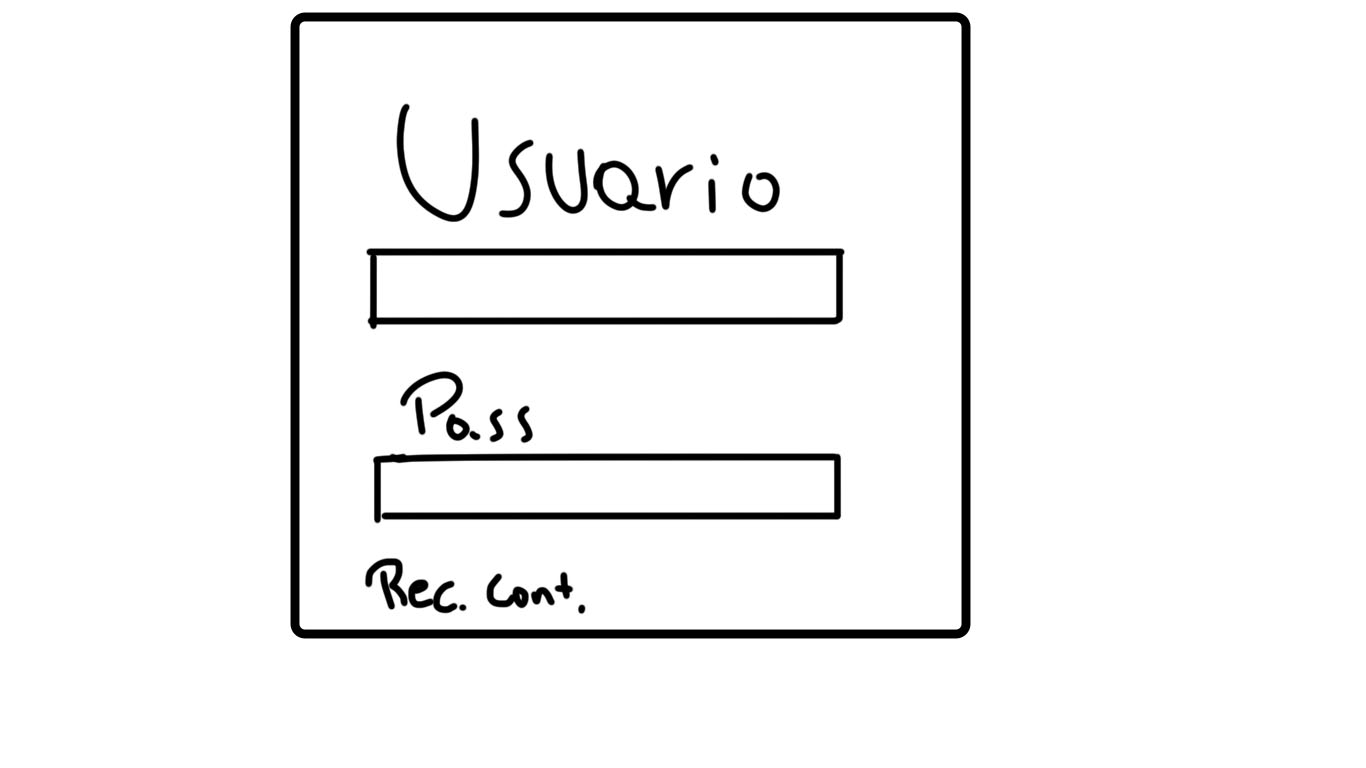 Usuario
Pass
Rec. Cont.